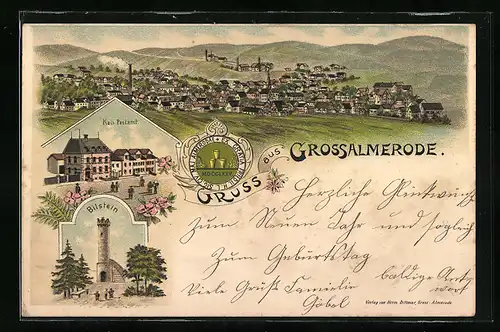 Kais. Postamt.
Bilstein
MDCCCLXXV
GRUSS aus GROSSALMERODE.
Herzliche Glückwünsch
zum Neuen Jahr und sogleich
Zum Geburtstag
baldige Antwort
Viele Grüße Familie
Göbel
Verlag von Herm. Dittmar, Gross-Almerode